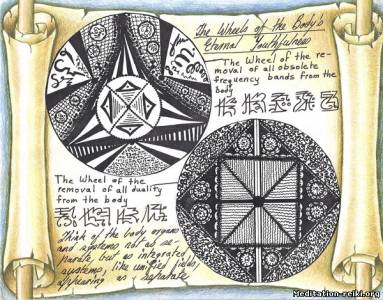 The Wheels of the Body's
Eternal Youthfulness
The Wheel of the re-
moval of all obsolete
frequency bands from the
body
The Wheel of the
removal of all duality
from the body
Think of the body organs
and systems not as se-
parate, but as integrated
systems, like unified fields,
appearing as separate
Meditation-reiki.org